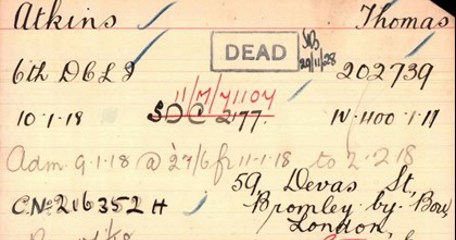 Atkins Thomas
DEAD 29/11/28
6th D of C L I 202739
11/M/71104
10.1.18 S.O.C 277. W.H00.1.11
Adm. 9.1.18 @ 27/6 fr 11-1-18 to 2.2.18
59, Devas St,
C.No 216352 H Bromley-by-Bow,
London,